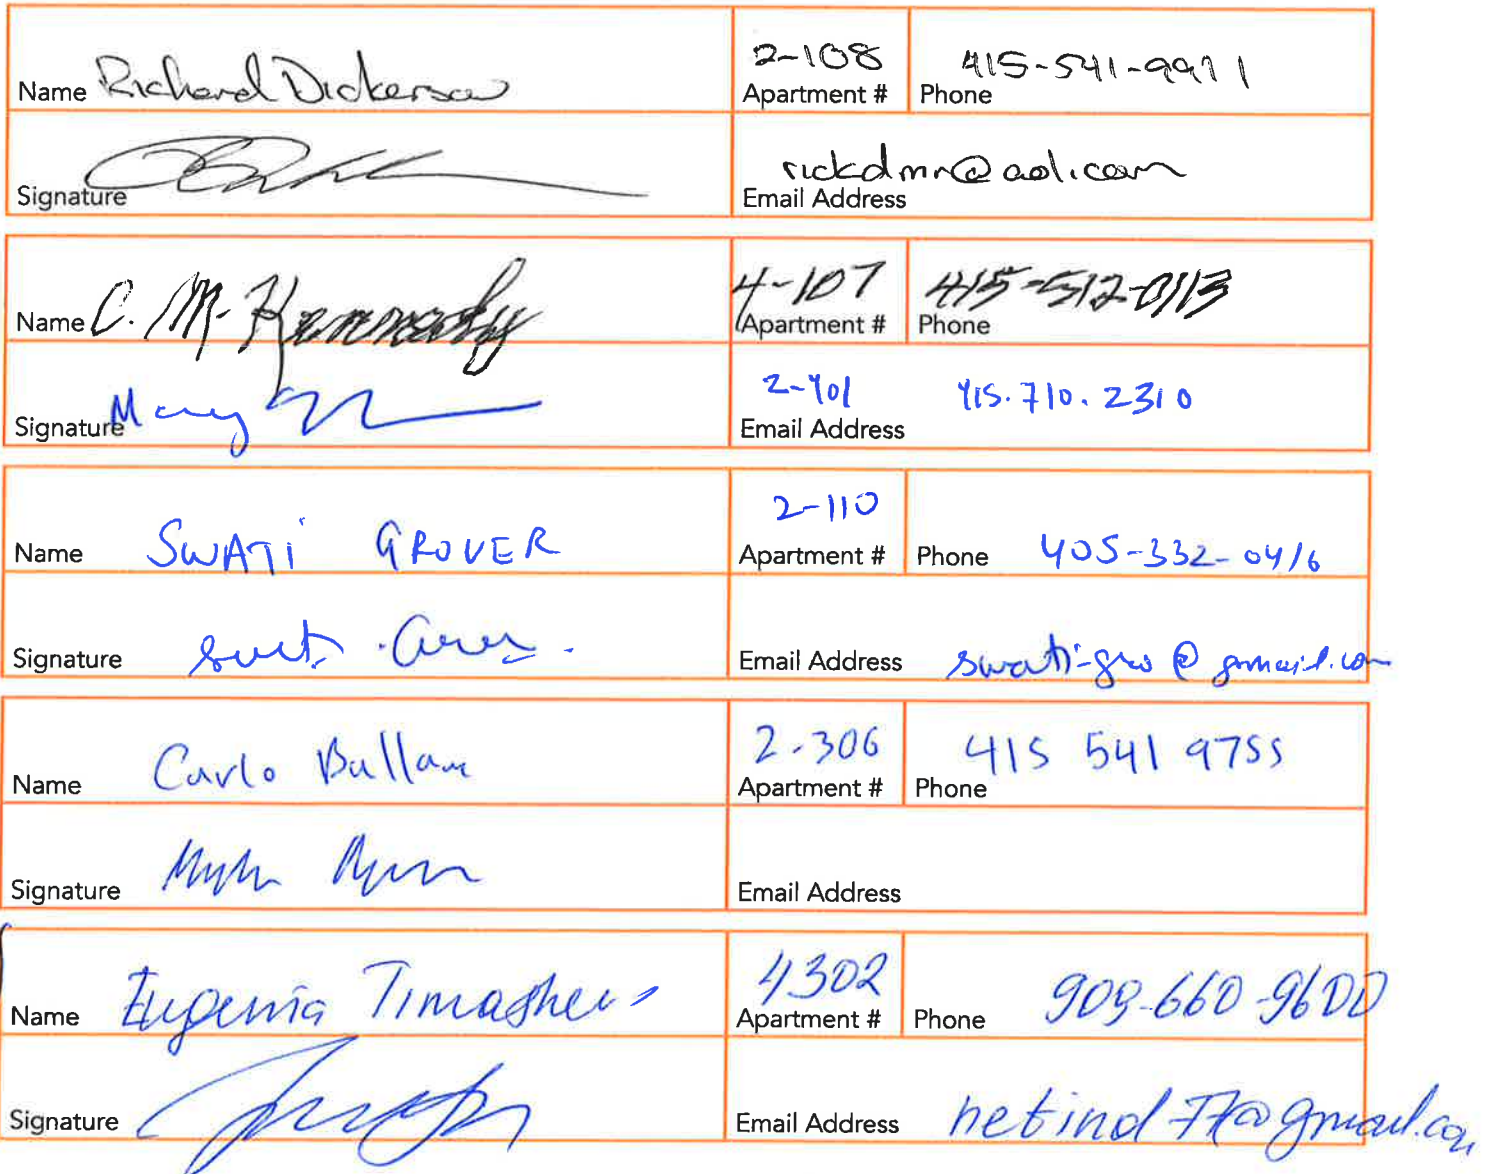 Name Richard Dickerson 2-108 Apartment # 415-541-9971 Phone
Signature rickdmn@aol.com Email Address
Name C. M. Kennedy 4-107 Apartment # 415-512-0113 Phone
Signature Mary 2-401 415.710.2310 Email Address
Name SWATI GROVER 2-110 Apartment # Phone 405-332-0416
Signature Email Address swati-gro@gmail.com
Name Carlo 2-306 Apartment # 415 541 9755 Phone
Signature Email Address
Name Eugenia 4302 Apartment # Phone 909-660-9600
Signature Email Address netind77@gmail.com